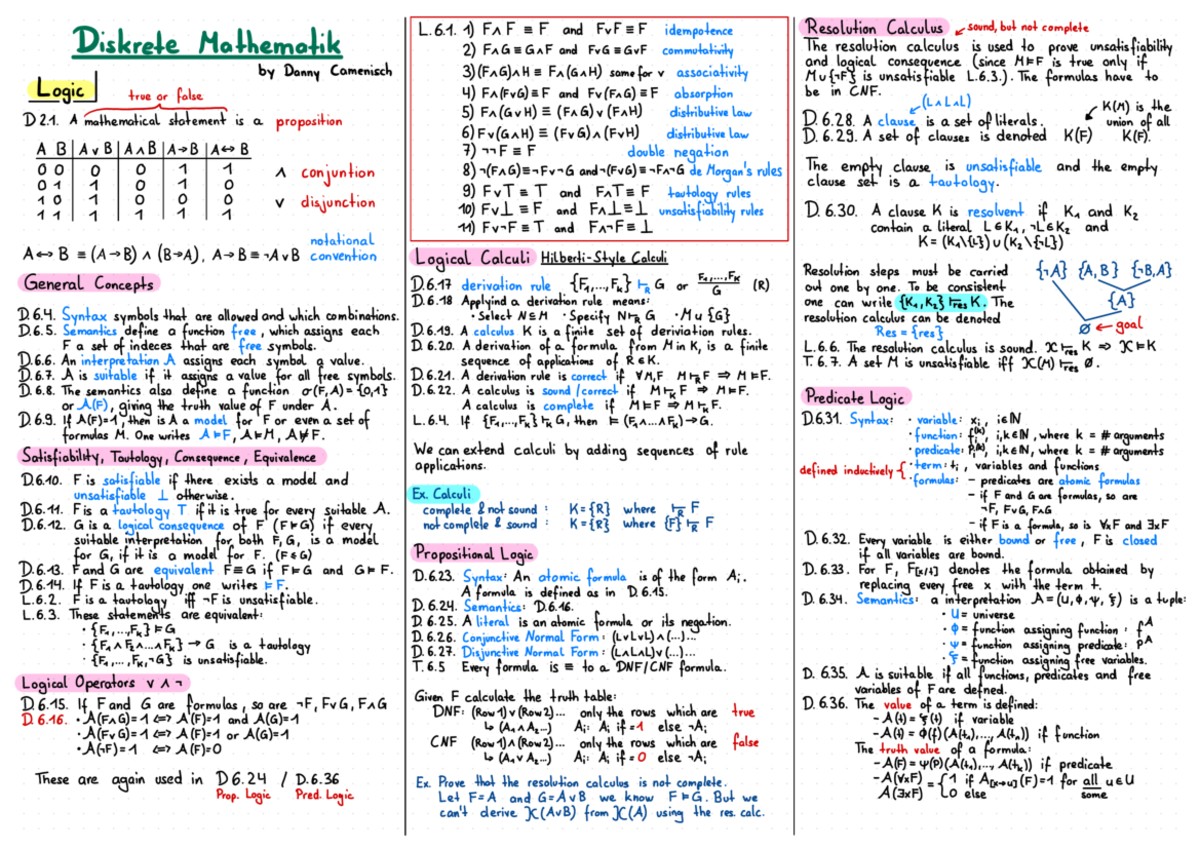 Diskrete Mathematik
by Danny Camenisch
Logic
true or false
D 2.1. A mathematical statement is a proposition
A B | A ∨ B | A ∧ B | A → B | A ↔ B
0 0 | 0 | 0 | 1 | 1
0 1 | 1 | 0 | 1 | 0
1 0 | 1 | 0 | 0 | 0
1 1 | 1 | 1 | 1 | 1
∧ conjuntion
∨ disjunction
A ↔ B ≡ (A → B) ∧ (B → A), A → B ≡ ¬A ∨ B notational convention
General Concepts
D.6.4. Syntax symbols that are allowed and which combinations.
D.6.5. Semantics define a function free, which assigns each
F a set of indeces that are free symbols.
D.6.6. An interpretation A assigns each symbol a value.
D.6.7. A is suitable if it assigns a value for all free symbols.
D.6.8. The semantics also define a function σ(F,A) = {0,1}
or A(F), giving the truth value of F under A.
D.6.9. If A(F)=1, then is A a model for F or even a set of
formulas M. One writes A ⊨ F, A ⊨ M, A ⊭ F.
Satisfiability, Tautology, Consequence, Equivalence
D.6.10. F is satisfiable if there exists a model and
unsatisfiable ⊥ otherwise.
D.6.11. F is a tautology T if it is true for every suitable A.
D.6.12. G is a logical consequence of F (F ⊨ G) if every
suitable interpretation for both F, G, is a model
for G, if it is a model for F. (F ⊨ G)
D.6.13. F and G are equivalent F ≡ G if F ⊨ G and G ⊨ F.
D.6.14. If F is a tautology one writes ⊨ F.
L.6.2. F is a tautology iff ¬F is unsatisfiable.
L.6.3. These statements are equivalent:
· {F₁,...,Fₖ} ⊨ G
· {F₁ ∧ F₂ ∧ ... ∧ Fₖ} → G is a tautology
· {F₁,...,Fₖ,¬G} is unsatisfiable.
Logical Operators ∨ ∧ ¬
D.6.15. If F and G are formulas, so are ¬F, F∨G, F∧G
D.6.16. · A(F∧G)=1 ⟺ A(F)=1 and A(G)=1
· A(F∨G)=1 ⟺ A(F)=1 or A(G)=1
· A(¬F)=1 ⟺ A(F)=0
These are again used in D 6.24 / D.6.36
Prop. Logic Pred. Logic
L.6.1. 1) F∧F ≡ F and F∨F ≡ F idempotence
2) F∧G ≡ G∧F and F∨G ≡ G∨F commutativity
3) (F∧G)∧H ≡ F∧(G∧H) same for ∨ associativity
4) F∧(F∨G) ≡ F and F∨(F∧G) ≡ F absorption
5) F∧(G∨H) ≡ (F∧G)∨(F∧H) distributive law
6) F∨(G∧H) ≡ (F∨G)∧(F∨H) distributive law
7) ¬¬F ≡ F double negation
8) ¬(F∧G) ≡ ¬F∨¬G and ¬(F∨G) ≡ ¬F∧¬G de Morgan's rules
9) F∨T ≡ T and F∧T ≡ F tautology rules
10) F∨⊥ ≡ F and F∧⊥ ≡ ⊥ unsatisfiability rules
11) F∨¬F ≡ T and F∧¬F ≡ ⊥
Logical Calculi Hilberti-Style Calculi
D.6.17 derivation rule {F₁,...,Fₖ} ⊢R G or F₁,...,Fₖ / G (R)
D.6.18 Applyind a derivation rule means:
· Select N ⊆ M · Specify N ⊢R G · M ∪ {G}
D.6.19. A calculus K is a finite set of deriviation rules.
D.6.20. A derivation of a formula from M in K, is a finite
sequence of applications of R ∈ K.
D.6.21. A derivation rule is correct if ∀M,F M ⊢R F ⇒ M ⊨ F.
D.6.22. A calculus is sound / correct if M ⊢K F ⇒ M ⊨ F.
A calculus is complete if M ⊨ F ⇒ M ⊢K F.
L.6.4. If {F₁,...,Fₖ} ⊢K G, then ⊨ (F₁∧...∧Fₖ) → G.
We can extend calculi by adding sequences of rule
applications.
Ex. Calculi
complete & not sound : K = {R} where ⊢R F
not complete & sound : K = {R} where {F} ⊢R F
Propositional Logic
D.6.23. Syntax: An atomic formula is of the form Aᵢ.
A formula is defined as in D.6.15.
D.6.24. Semantics: D.6.16.
D.6.25. A literal is an atomic formula or its negation.
D.6.26. Conjunctive Normal Form : (L∨L∨L)∧(...)...
D.6.27. Disjunctive Normal Form : (L∧L∧L)∨(...)...
T.6.5 Every formula is ≡ to a DNF/CNF formula.
Given F calculate the truth table:
DNF: (Row 1)∨(Row 2)... only the rows which are true
↳ (A₁∧A₂...) Aᵢ: Aᵢ if = 1 else ¬Aᵢ
CNF (Row 1)∧(Row 2)... only the rows which are false
↳ (A₁∨A₂...) Aᵢ: Aᵢ if = 0 else ¬Aᵢ
Ex. Prove that the resolution calculus is not complete.
Let F = A and G = A∨B we know F ⊨ G. But we
can't derive K(A∨B) from K(A) using the res. calc.
Resolution Calculus sound, but not complete
The resolution calculus is used to prove unsatisfiability
and logical consequence (since M ⊨ F is true only if
M ∪ {¬F} is unsatisfiable L.6.3.). The formulas have to
be in CNF.
(L∧L∧L)
K(M) is the
union of all
K(F).
D.6.28. A clause is a set of literals.
D.6.29. A set of clauses is denoted K(F)
The empty clause is unsatisfiable and the empty
clause set is a tautology.
D.6.30. A clause K is resolvent if K₁ and K₂
contain a literal L ∈ K₁, ¬L ∈ K₂ and
K = (K₁\{L}) ∪ (K₂\{¬L})
Resolution steps must be carried
out one by one. To be consistent
one can write {K₁,K₂} ⊢res K. The
resolution calculus can be denoted
Res = {res}
{¬A} {A,B} {¬B,A}
{A}
∅ ← goal
L.6.6. The resolution calculus is sound. K ⊢res K ⇒ K ⊨ K
T.6.7. A set M is unsatisfiable iff K(M) ⊢res ∅.
Predicate Logic
D.6.31. Syntax: · variable: xᵢ i∈ℕ
· function: fᵢ⁽ᵏ⁾, i,k∈ℕ, where k = # arguments
· predicate: Pᵢ⁽ᵏ⁾, i,k∈ℕ, where k = # arguments
defined inductively { · term: tᵢ, variables and functions
· formulas: – predicates are atomic formulas
– if F and G are formulas, so are
¬F, F∨G, F∧G
– if F is a formula, so is ∀xF and ∃xF
D.6.32. Every variable is either bound or free, F is closed
if all variables are bound.
D.6.33. For F, F[x/t] denotes the formula obtained by
replacing every free x with the term t.
D.6.34. Semantics: a interpretation A = (U,φ,ψ,ξ) is a tuple:
· U = universe
· φ = function assigning function : fᴬ
· ψ = function assigning predicate: Pᴬ
· ξ = function assigning free variables.
D.6.35. A is suitable if all functions, predicates and free
variables of F are defned.
D.6.36. The value of a term is defined:
– A(t) = ξ(t) if variable
– A(t) = φ(f)(A(t₁),..., A(tₙ)) if function
The truth value of a formula:
– A(F) = ψ(P)(A(t₁),..., A(tₖ)) if predicate
– A(∀xF) = {1 if A[x→u](F)=1 for all u∈U
A(∃xF) 0 else some